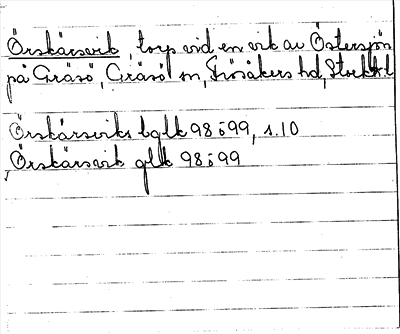 Örskärsvik, torp vid en vik av Östersjön
på Gräsö, Gräsö sn, Frösåkers hd, Stockh. l
Örskärsviks bglk 98 ö 99, s. 10
Örskärsvik glk 98 ö 99